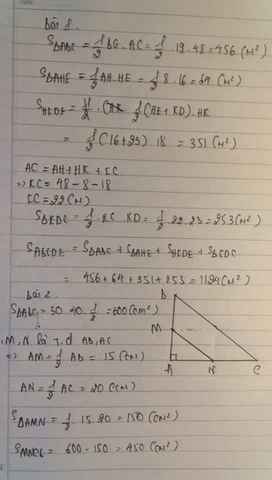 Bài 1.
S∆ABC = 1/2 BG . AC = 1/2 . 19 . 48 = 456 (m²)
S∆AHE = 1/2 AH . HE = 1/2 8 . 16 = 64 (m²)
SHKDE = 1/2 . (HE + KD) . HK
= 1/2 (16 + 23) . 18 = 351 (m²)
AC = AH + HK + KC
=> KC = 48 - 8 - 18
KC = 22 (m)
S∆KDC = 1/2 . KC . KD = 1/2 . 22 . 23 = 253 (m²)
SABCDE = S∆ABC + S∆AHE + SHKDE + S∆KDC
= 456 + 64 + 351 + 253 = 1124 (m²)
Bài 2.
S∆ABC = 30 . 40 . 1/2 = 600 (cm²)
B
M, N là t.đ AB, AC
M
=> AM = 1/2 AB = 15 (cm)
A N C
AN = 1/2 AC = 20 (cm)
S∆AMN = 1/2 . 15 . 20 = 150 (cm²)
SMNCB = 600 - 150 = 450 (cm²)